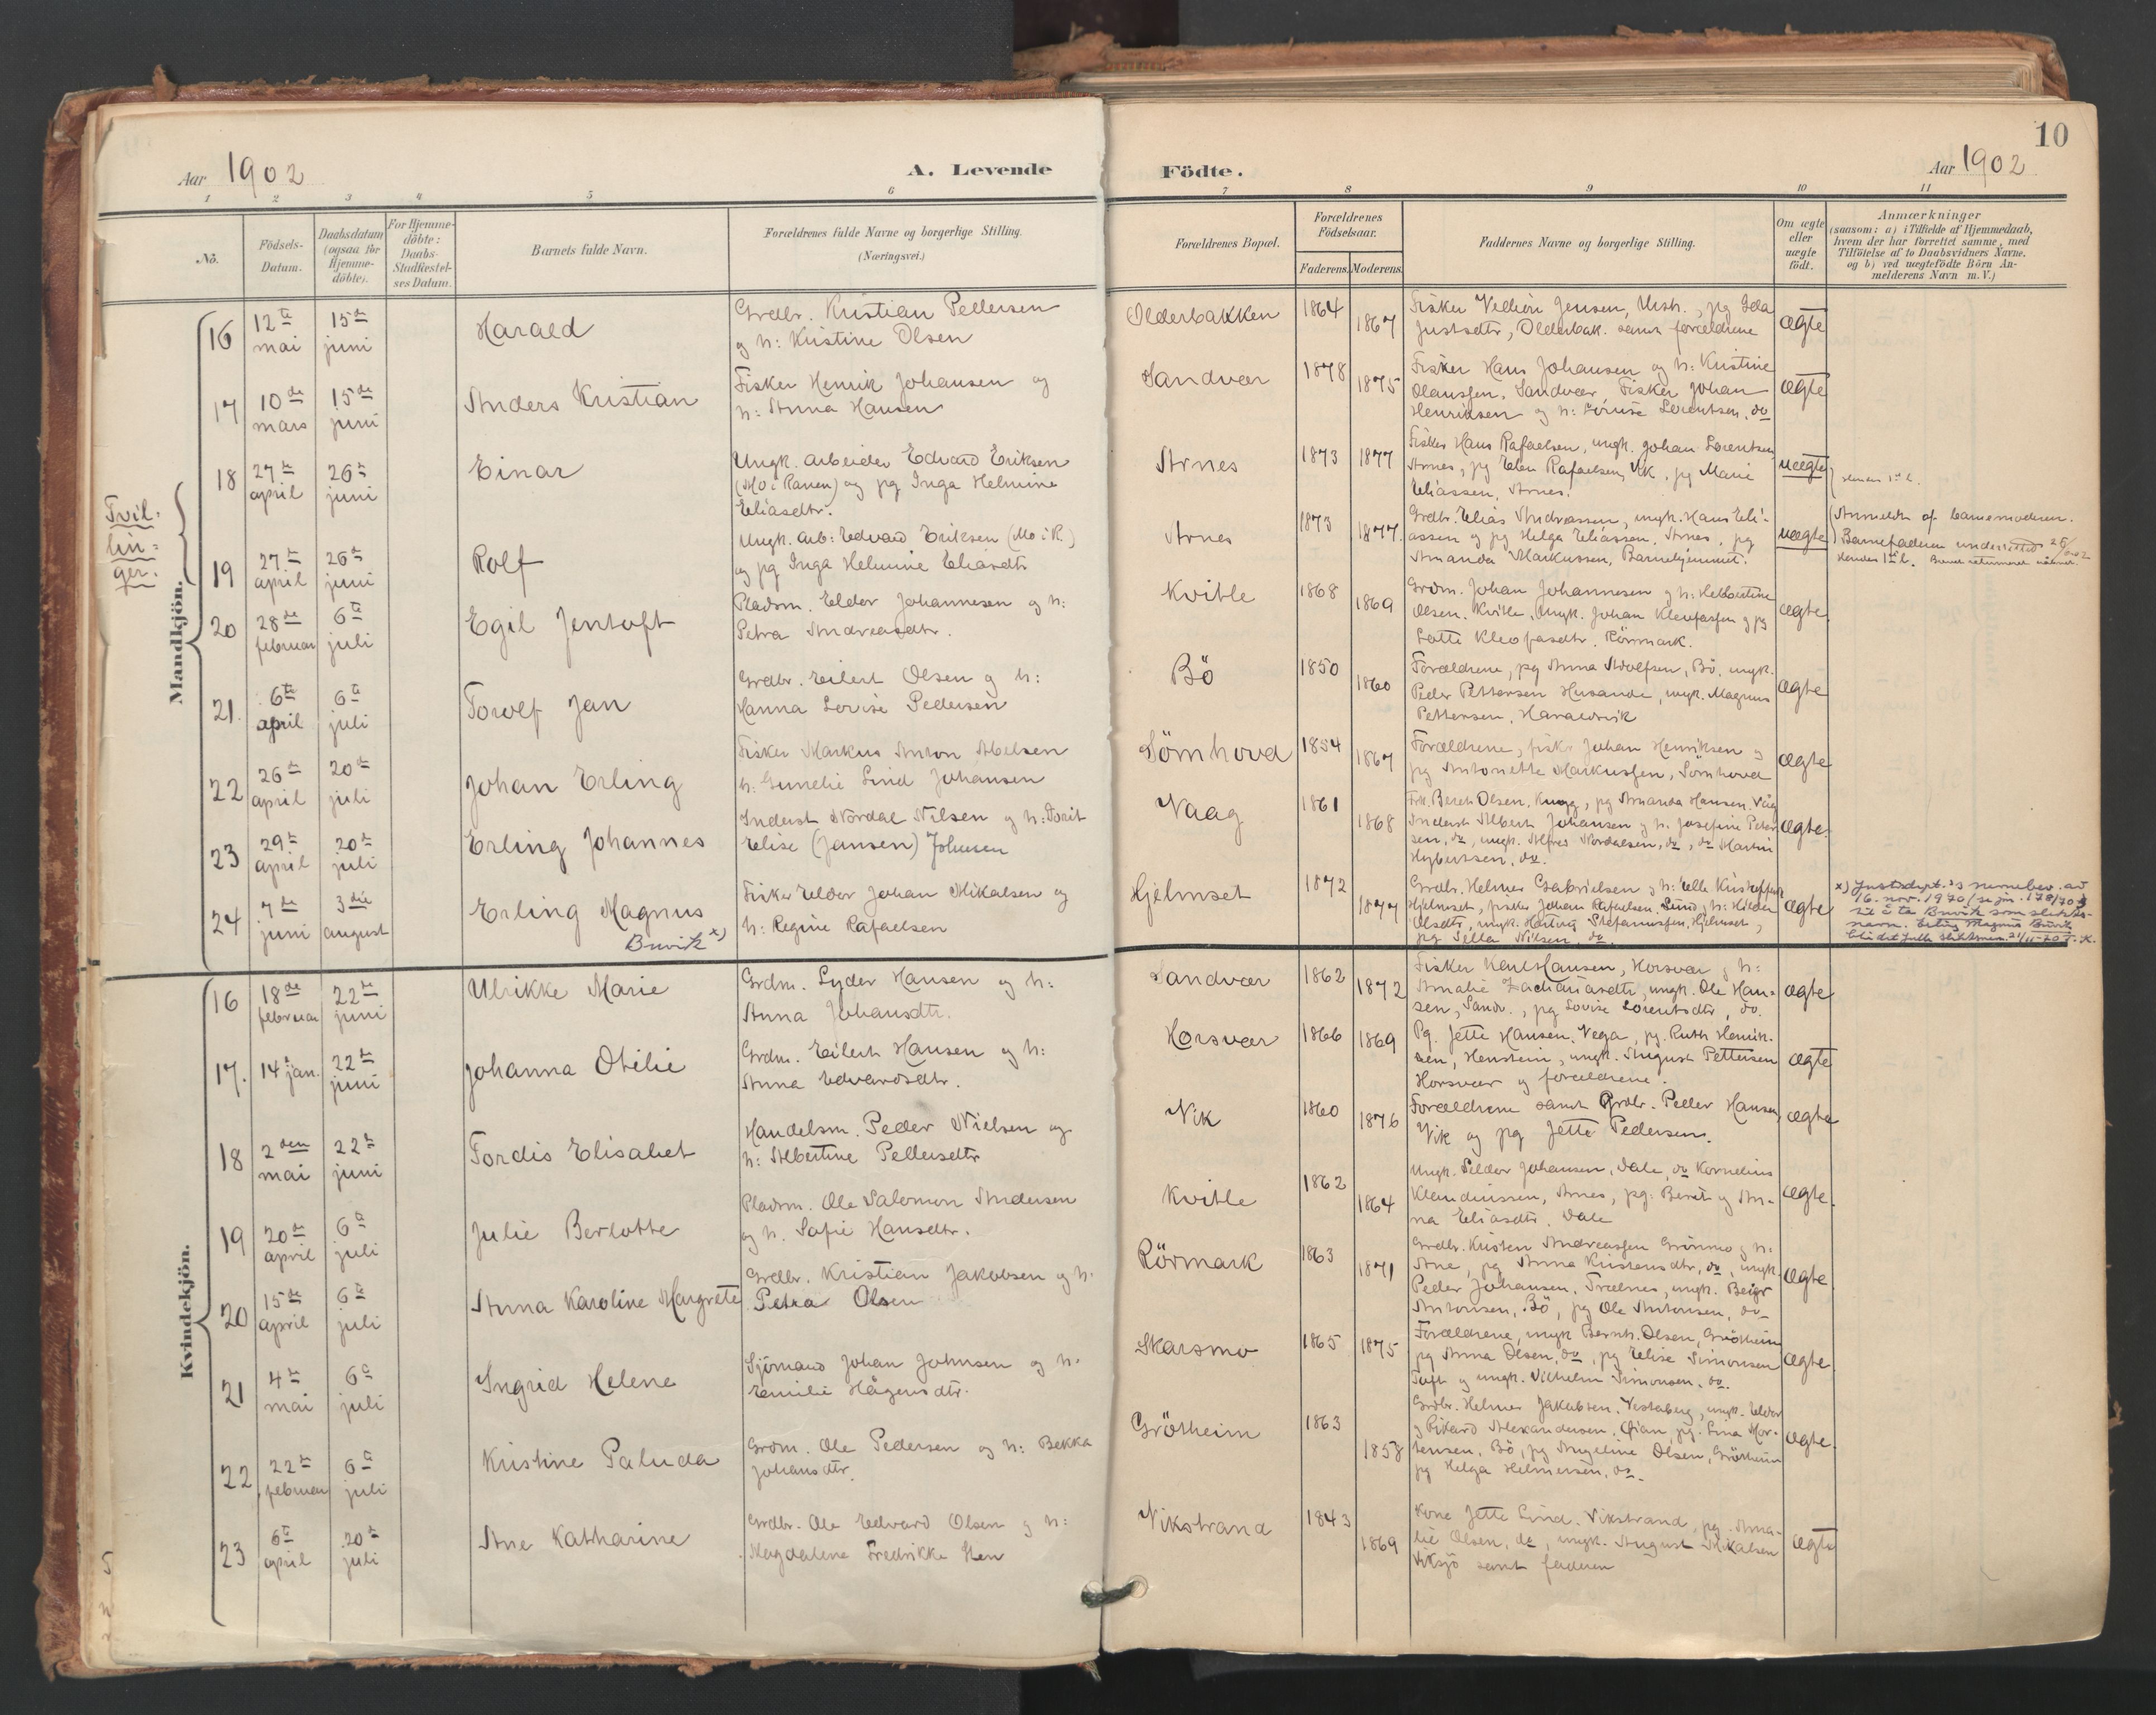 10
Aar 1902
A. Levende
Födte.
Aar 1902
1 2 3 4 5 6 7 8 9 10 11
No.
Födsels-
Datum.
Daabsdatum
(ogsaa for
Hjemme-
döbte).
For Hjemme-
döbte:
Daabs-
Stadfæstel-
ses Datum.
Barnets fulde Navn.
Forældrenes fulde Navne og borgerlige Stilling.
(Næringsvei.)
Forældrenes Bopæl.
Forældrenes
Födselsaar.
Faderens. Moderens.
Faddernes Navne og borgerlige Stilling.
Om ægte
eller
uægte
födt.
Anmærkninger
(saasom: a) i Tilfælde af Hjemmedaab,
hvem der har forrettet samme, med
Tilföielse af to Daabsvidners Navne.
og b) ved uægtefödte Börn An-
melderens Navn m. V.)
Mandkjön.
Tvil-
lin-
ger.
16 12te mai 15de juni Harald
Grdbr. Kristian Pettersen
og h: Kristine Olsen
Olderbakken 1864 1867
Jensen, pg Ida
Justsdtr, Olderbak. samt forældrene
ægte
17 10de mars 15de juni Anders Kristian
Fisker Henrik Johansen og
h: Anna Hansen
Sandvær 1878 1875
Fisker Hans Johansen og h: Kristine
Olaussen, Sandvær, Fisker Johan
Henriksen og h: Lovise Lorentsen, do
ægte
18 27de april 26de juni Einar
Ungk. arbeider Edvard Eriksen
(Mo i Ranen) og pg Inga Helmine
Eliasdtr.
Arnes 1873 1877
Fisker Hans Rafaelsen, ungk. Johan Lorentsen
Arnes, pg Elen Rafaelsen, Vik, pg Marie
Eliassen, Arnes.
uægte
19 27de april 26de juni Rolf
Ungk. arb: Edvard Eriksen (Mo i R.)
og pg Inga Helmine Eliasdtr
Arnes 1873 1877.
Grdbr. Elias Andreassen, ungk. Hans Eli-
assen og pg Helga Eliassen, Arnes, pg
Amanda Markussen, Barnehjemmet.
uægte
Anmeldt af barnemoderen.
Barnefaderen underrettet
20 28de februar 6te juli Egil Jentoft
Pladsm. Eldor Johannesen og h:
Petra Andreasdtr.
Kvitle 1868 1869
Grdm. Johan Johannesen og h: Helbertine
Olsen, Kvitle, Ungk. Johan Kleofassen og pg
Lotte Kleofasdtr, Rörmark.
ægte
21. 6te april 6te juli Torolf Jan
Grdbr. Eilert Olsen og h:
Hanna Lovise Pedersen
Bö 1850 1860
Forældrene, pg Anna Adolfsen, Bö, ungk.
Peder Pettersen Husande, ungk. Magnus
Pettersen, Haraldvik
ægte
22 26de april 20de juli Johan Erling
Fisker Markus Anton Abelsen
h: Lind Johansen
Sömhovd 1854 1867
Forældrene, fisker Johan Henriksen og
pg Antonette Markussen, Sömhovd
ægte
23 29de april 20de juli Erling Johannes
Inderst Nordal Nilsen og h: Dorit
Elise (Jansen) Johnsen
Vaag 1861 1868
Olsen, pg Amanda Hansen, Vaag
Inderst Albert Johansen og h: Josefine Peter-
sen, do, ungk. Alfred Nordalsen, do, do Martin
Hybertsen, do.
ægte.
24 7de juni 3die august Erling Magnus
Buvik x)
Fisker Eldor Johan Mikalsen og
h: Regine Rafaelsen
Hjelmset 1872 1877
Grdbr. Helmer Gabrielsen og h: Elle Kristoffers
Hjelmset, fisker Johan Rafaelsen Sund og h: Hilda
Olsdtr, ungk. Hartvig Stefanussen, Hjelmset,
pg Sella Nilsen, do.
ægte
x) Justisdept.'s navnebev. av
16. nov. 1970 (se jnr. 178/70)
til å ta Buvik som slekts-
navn. Erling Magnus Buvik
Kvindekjön.
16 18de februar 22de juni Ulrikke Marie
Grdm. Lyder Hansen og h:
Anna Johansdtr.
Sandvær 1862 1872
Fisker Karl Hansen, Horsvær og h:
Amalie Zachariasdtr, ungk. Ole Han-
sen, Sandv., pg Lovise Lorentsdtr, do.
ægte
17. 14 jan. 22de juni Johanna Otilie
Grdm. Eilert Hansen og h:
Anna Edvardsdtr.
Horsvær 1866 1869
Pg. Jette Hansen, Vega, pg. Ruth Henrik-
sen, Henstein, ungk. August Pettersen
Horsvær og forældrene.
ægte
18 2den mai 22de juni Tordis Elisabet
Handelsm. Peder Nielsen og
h: Albertine Pettersdtr
Vik 1860 1876
Forældrene samt Grdbr. Petter Hansen,
Vik og pg Jette Pedersen.
ægte
19 20de april 6te juli Julie Berlotte
Pladsm. Ole Salomon Andersen
og h. Sofie Hansdtr.
Kvitle 1862 1864
Ungk. Peldor Johansen, Dale, do Kornelius
Klaudiussen, Arnes, pg: Berit og An-
na Eliasdtr, Dale
ægte.
20 15de april 6te juli Anna Karoline Margrete
Grdbr. Kristian Jakobsen og h.
Petra Olsen
Rörmark 1863 1871
Grdbr. Kristen Andreassen Grönmo og h:
Ane, pg Anna Kristensdtr, do, ungk.
Peder Johansen, Trælnes, ungk. Beier
Antonsen, Bö, pg Ole Antonsen, do
ægte.
21 4de mai 6te juli Ingrid Helene
Sjömand Johan Johnsen og h.
Emilie Hågensdtr.
Skarsmo 1865 1875
Forældrene, ungk Bernh. Olsen, Grötheim
pg Anna Olsen, do, pg Elise Simonsen
Toft og ungk. Vilhelm Simonsen, do.
ægte.
22 22de februar 6te juli Kristine Paluda
Grdm. Ole Pedersen og h: Bekka
Johansdtr.
Grötheim 1863 1858
Grdbr. Helmer Jakobsen, Vestaberg, ungk. Eldor
og Rikard Alexandersen, pg. Lina Mor-
tensen, Bö, pg Angeline Olsen, Grötheim
pg Helga Helmersen, do.
ægte.
23 6te april 20de juli Ane Katharine
Grdbr. Ole Edvard Olsen og h:
Magdalena Fredrikke Sten
Vikstrand 1843 1869
Kone Jette Lind, Vikstrand, pg. Ama-
lie Olsen, do, ungk. August Mikalsen
Viksjö samt faderen
ægte